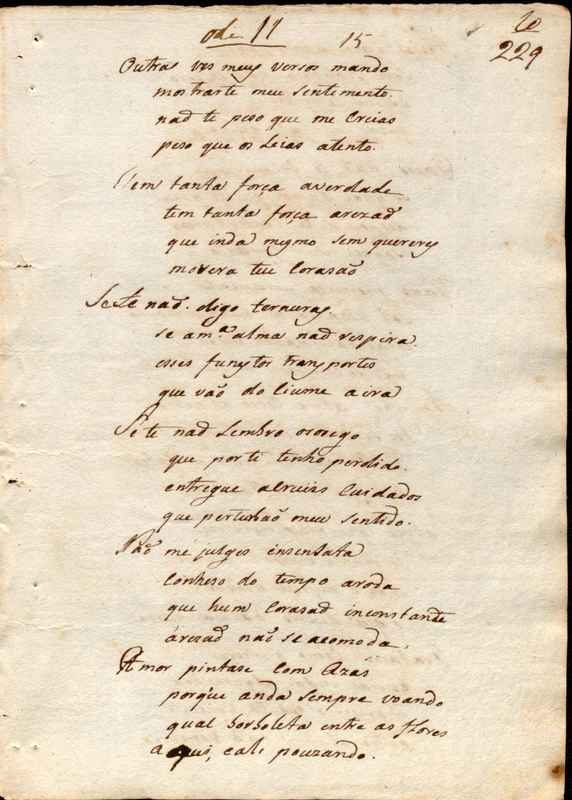 ode 11
15
10
229
Outras ves meus versos mando
mostrarte meu sentemento.
naõ te peso que me Creias
peso que os Leias atento.
Tem tanta força averdade
tem tanta força arezaõ
que inda mesmo sem quereres
movera teu Corasaõ
Sete naõ. digo ternuras.
se am.ª alma naõ respira.
esses funestos transportes
que vaõ do Ciume aira
Se te naõ Lembro ososego
que porti tenho perdido.
entregue acrueis Cuidados
que perturbaõ meu sentido.
Naõ me julges insensata
Conheso do tempo aroda
que hum Corasaõ inconstande
árezaõ naõ se acomoda.
Amor pintase Com Azas
porque anda sempre voando
qual borboleta entre as flores
a qui, eali pouzando.